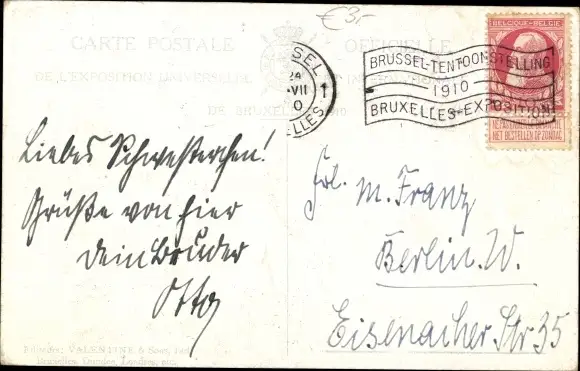 €3,-
CARTE POSTALE OFFICIELLE
DE L'EXPOSITION UNIVERSELLE ET INTERNATIONALE
DE BRUXELLES 1910
BELGIQUE-BELGIË
NE PAS LIVRER LE DIMANCHE
NIET BESTELLEN OP ZONDAG
SSEL
VII
ELLES
BRUSSEL-TENTOONSTELLING
1910
BRUXELLES-EXPOSITION
Liebes Schwesterchen!
Grüße von hier
Dein Bruder
Otto
Frl. M. Franz
Berlin. W.
Eisenacher Str 35
VALENTINE & Sons, Ltd
Bruxelles, Dundee, Londres, etc.